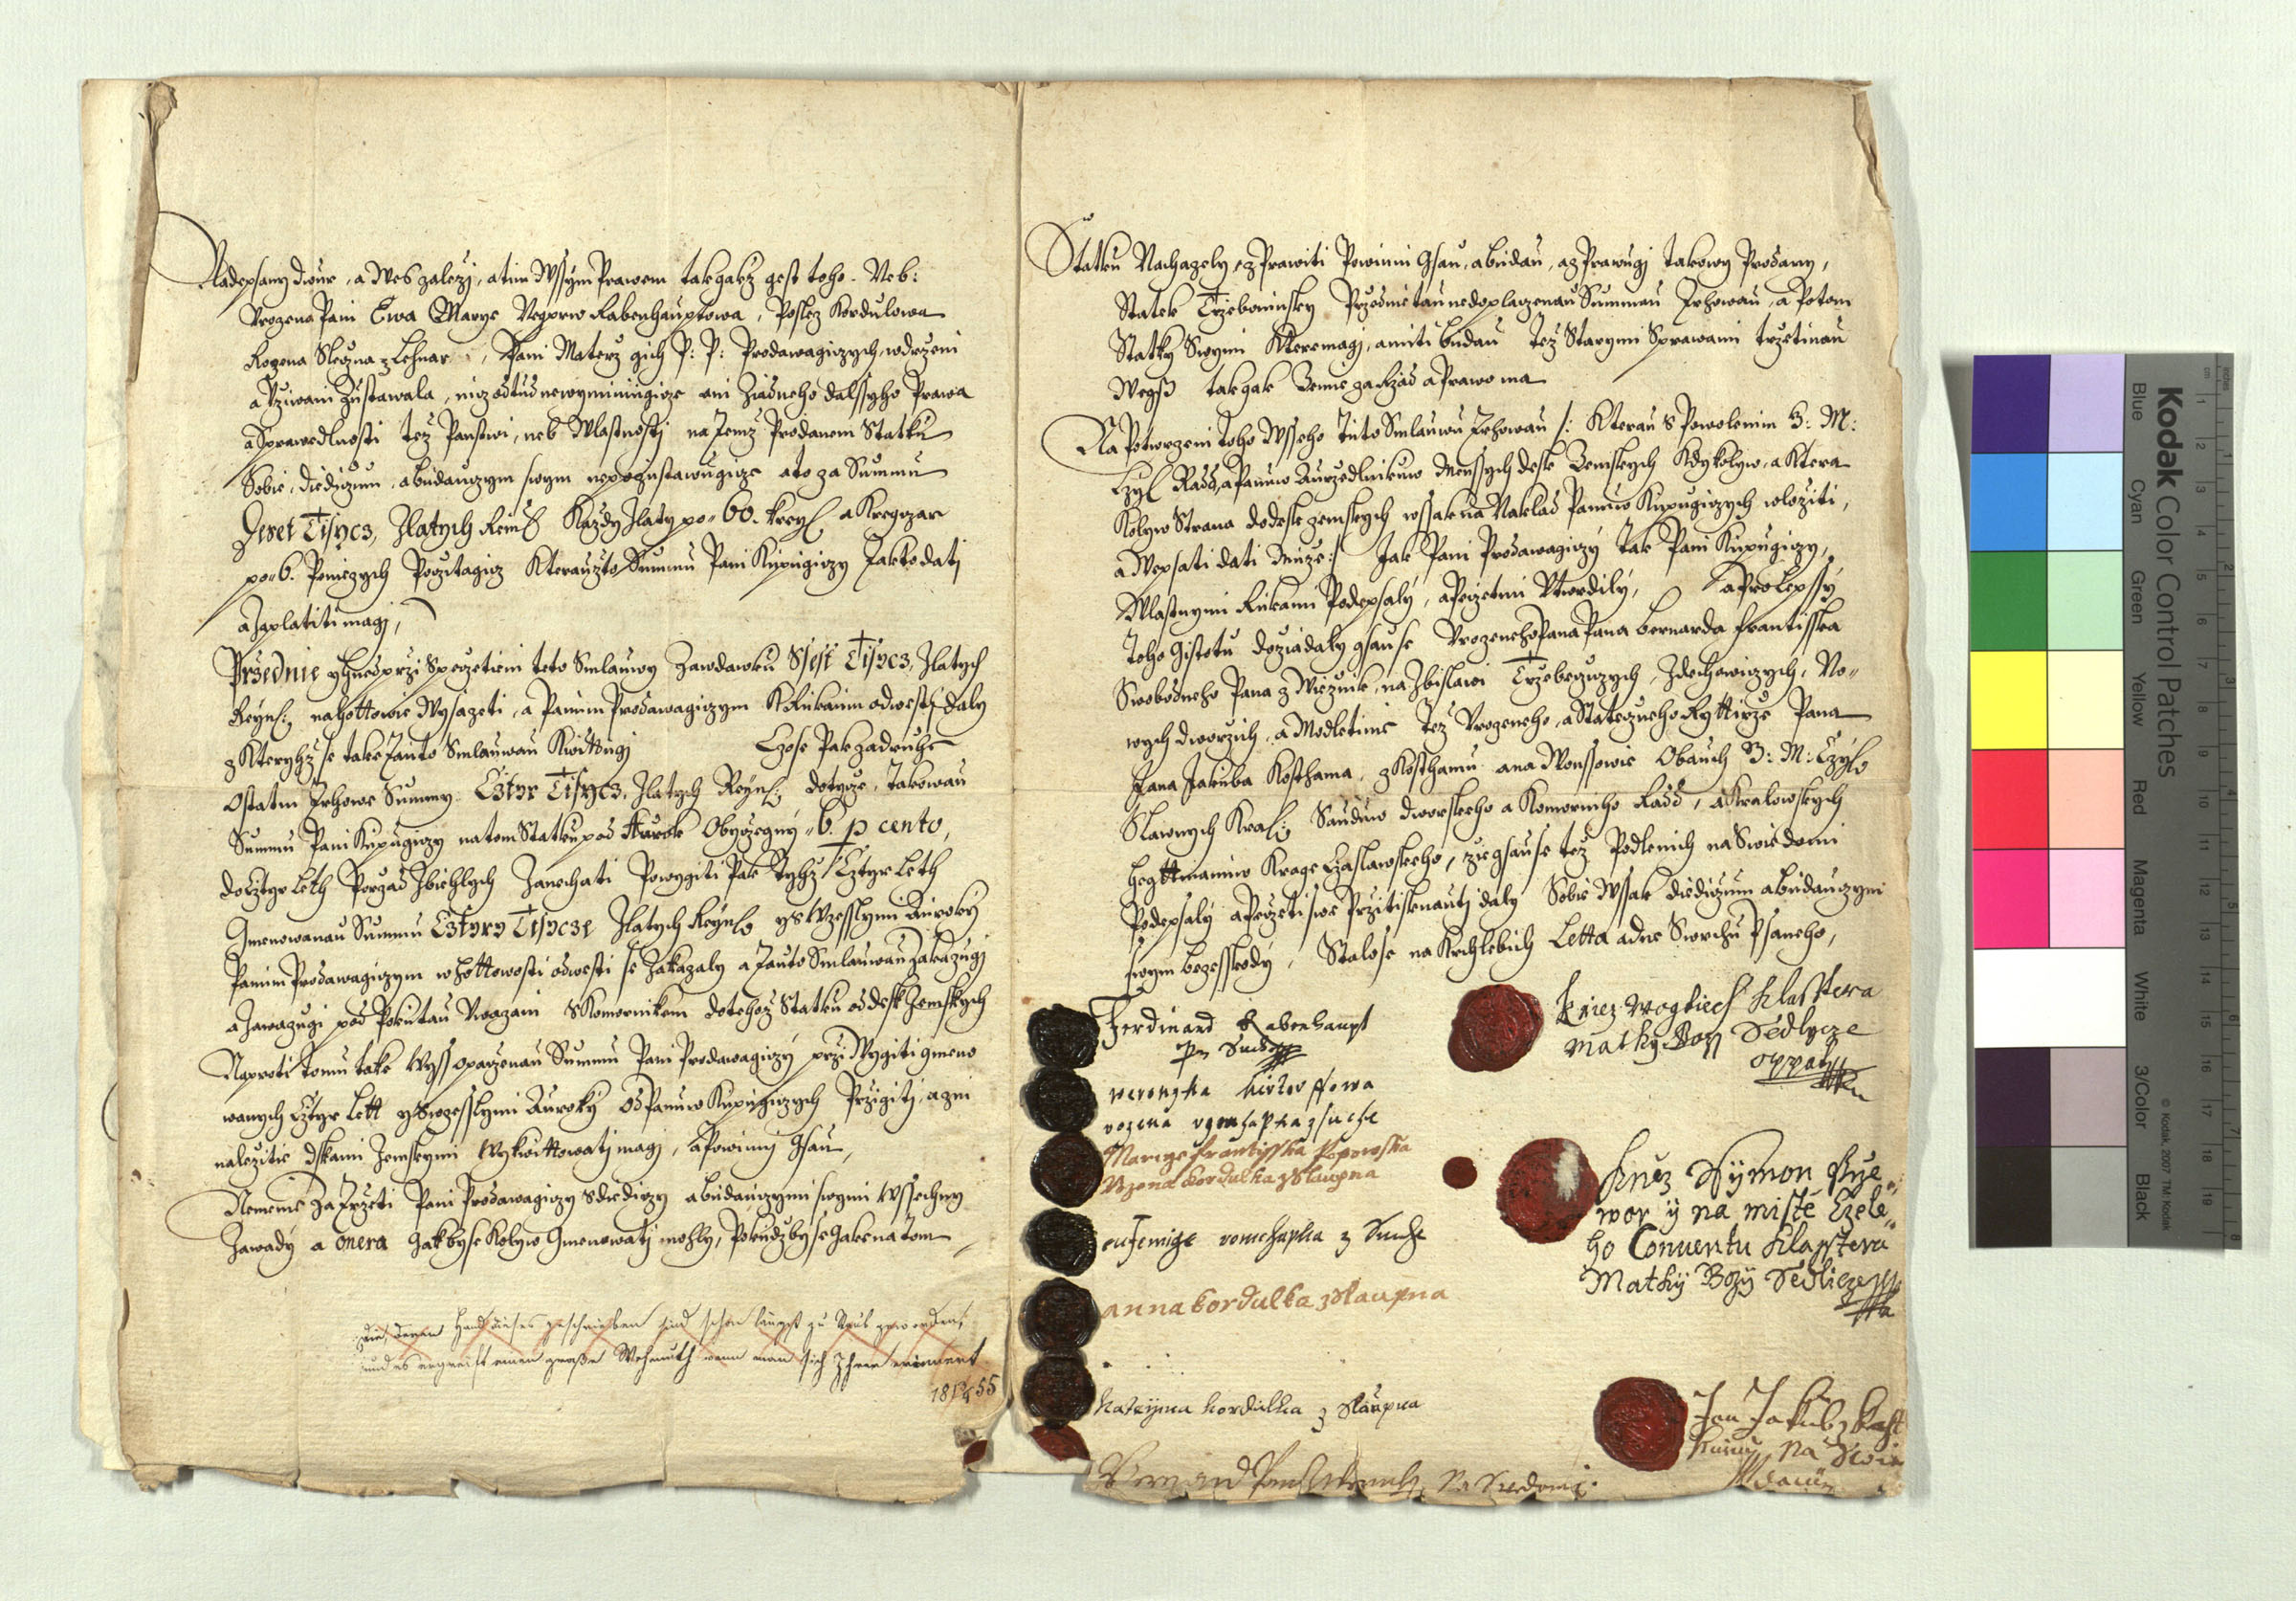 Nadepsany dwur, a Wes zalezj, a tim Wssym Prawem tak gakz gest toho Neb:
Urozena Pani Ewa Marye Negprw Rabenhauptowa, Poslez Kordulowa
Rozena Slewna z Lehnar, Pani Materz gich P: P: Prodawagiczych, w drzeni
a Uziwani Zustawala, nicz odtud newyminiugicze ani Ziadneho dalssyho Prawa
a Sprawedlnosti tez Panstwi, neb Wlastnostj na Temz Prodanem Statku
Sobie, Diediczum, a buduczym swym nepozustawugicze a to za Summu
Deset Tisycz, Zlatych Reinß Kazdy Zlaty po 60. kreyß a Kreyczar
po 6. Penizych Pocztagicz Kterauzto Summu Pani Kupugiczy Takto datj
a Zaplatiti magj,
Przednie yhned przi Speczetieni teto Smlauwy Zawdawku Ssest Tisycz, Zlatych
Reynß nahottowie Wysazeti, a Panum Prodawagiczym K Rukaum odwestj daly
z Kterychz se take Tauto Smlauwau Kwitugj Czo se Pak zadruhe
Ostatni Trhowe Summy Cztyr Tisycz, Zlatych Reynß dotycze, Takowau
Summu Pani Kupugiczy na tom Statku pod Aurok Obyczegny 6. p cento,
do Cztyr Leth Porzad Zbiehlych Zanechati Powygiti Pak Tychz Cztyr Leth
Gmenowanau Summu Cztyry Tisycze Zlatych Reynß y s Wzesslymi Auroky
Panum Prodawagiczym w hottowosti odwesti se Zakazaly a Tauto Smlauwau Zakazugj
a Zawazugj pod Pokutau Uwazani s Komornikem do tehoz Statku od desk Zemskych
Naproti tomu take Wyss opaczenau Summu Pani Prodawagiczy przi Wygiti gmeno
wanych Cztyr Lett y s Wzesslymi Auroky Od Panuw Kupugiczych Przigiti, a gni
nalezitie Dskami Zemskymi Wykwittowatj magj, a Powinnj gsau,
Nemenie za Trzeti Pani Prodawagiczy s diediczy a buduczymi swymi Wssechny
Zawady a onera gakby se Kolyw Gmenowatj mohly, Pokudzby se gake na tom
die deren Hand dieses geschrieben sind schon längst zu Staub geworden,
und es ergreift einen große Wehmuth wenn man sich Ihrer erinnert
55
Statku Nachazely, zprawiti Powinni Gsau, a budau, a zprawugj Takowy Prodany,
Statek Trzeboninsky Przedmetau nedoplaczenau Summau Trhowau, a Potom
Statky Swymi Ktere magj, a miti budau Tez Starymi Sprawami trzetinau
Wegss tak gak Zemie za Rzad a Prawo ma
Na Potwrzeni toho Wsseho Tuto Smlauwu Trhowau /: Kterau s Powolenim G: M:
Czyß Radd, a Panuw Aurzednikuw Menssych desk Zemskych Kdykolyw, a Ktera
Kolyw Strana do desk zemskych wssak na Naklad Panuw Kupugiczych wloziti,
a Wepsati dati muze :/ Jak Pani Prodawagiczy Tak Pani Kupugiczy,
Wlastnymi Rukami Podepsaly, a Peczetmi Utwrdily, a Pro Lepssy
Toho Gistotu dozadaly gsau se Urozeneho Pana Pana Bernarda Frantisska
Swobodneho Pana z Wieznik, na Zbislawi Trzebczyczych, Zdechowiczych, No
wych dworzich, a Modletinie Tez Urozeneho, a Stateczneho Ryttirze Pana
Jana Jakuba Kosthama, z Kosthamu a na Wonssowie Obauch G: M: Czyß
Slawnych Kralß Sauduw dworskeho a Komorniho Radd, a Kralowskych
Hegttmanuw Krage Czaslawskeho, zie gsau se tez Podlenich na Swiedomi
Podepsaly a Peczeti swe Przitisknautj daly Sobie Wssak Diediczum a buduczym
swym bezesskody, Stalo se na Krchlebich Letta a dne Swrchu Psaneho,
Ferdinand Rabenhaupt
ze Suche
werongka
rozena z suche
Marye Frantysska Popowska
Rozena Kordulka z Slaupna
eufemige z Suche
anna kordulka z Slaupna
Kateryna kordulka z Slaupna
Knez Wogtiech Klasstera
matky Bozy Sedlecze
oppat
Knez Symon Prye
wor y na miste Czele
ho Conuentu Klasstera
Matky Bozy Sedlicze
Jan Jakub z Kost
na Swie
domi
Kodak Color Control Patches
Blue Cyan Green Yellow Red Magenta White 3/Color Black
© Kodak, 2007 TM: Kodak
inches 1 2 3 4 5 6 7 8
cm 1 2 3 4 5 6 7 8 9 10 11 12 13 14 15 16 17 18 19